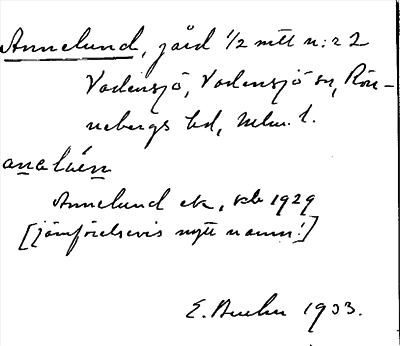 Annelund, gård 1/2 mtl n:r 2
Vadensjö, Vadensjö sn, Rön-
nebergs hd, Mlm. l.
Annelund ek, kb 1929
[jämförelsevis nytt namn!]
E. 1933.